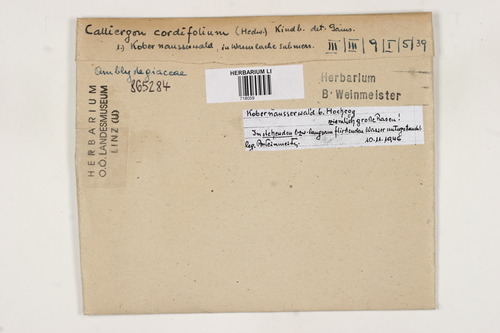 Calliergon cordifolium (Hedw.) Kindb. det. Gams.
1.) Kobernausserwald, in Warmlache submers. III III 9 I 5/39
Amblystegiaceae
865284
HERBARIUM LI
718059
Herbarium
B. Weinmeister
HERBARIUM
O.Ö. LANDESMUSEUM
LINZ (LI)
Kobernausserwald b. Hocheng
ziemlich große Rasen!
In stehendem bzw. langsam fließendem Wasser untergetaucht
leg. B. Weinmeister 10.11.1946